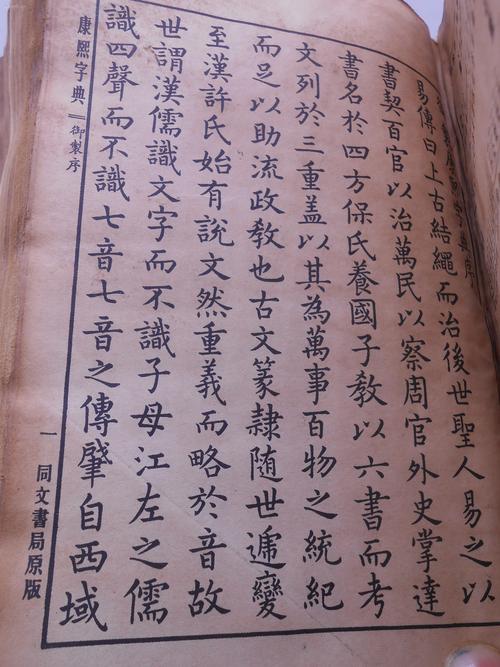 易傳曰上古結繩而治後世聖人易之以
書契百官以治萬民以察周官外史掌達
書名於四方保氏養國子教以六書而考
文列於三重盖以其為萬事百物之統紀
而足以助流政敎也古文篆隸隨世遞變
至漢許氏始有說文然重義而略於音故
世謂漢儒識文字而不識子母江左之儒
識四聲而不識七音七音之傳肇自西域
康熙字典 御製序
一 同文書局原版